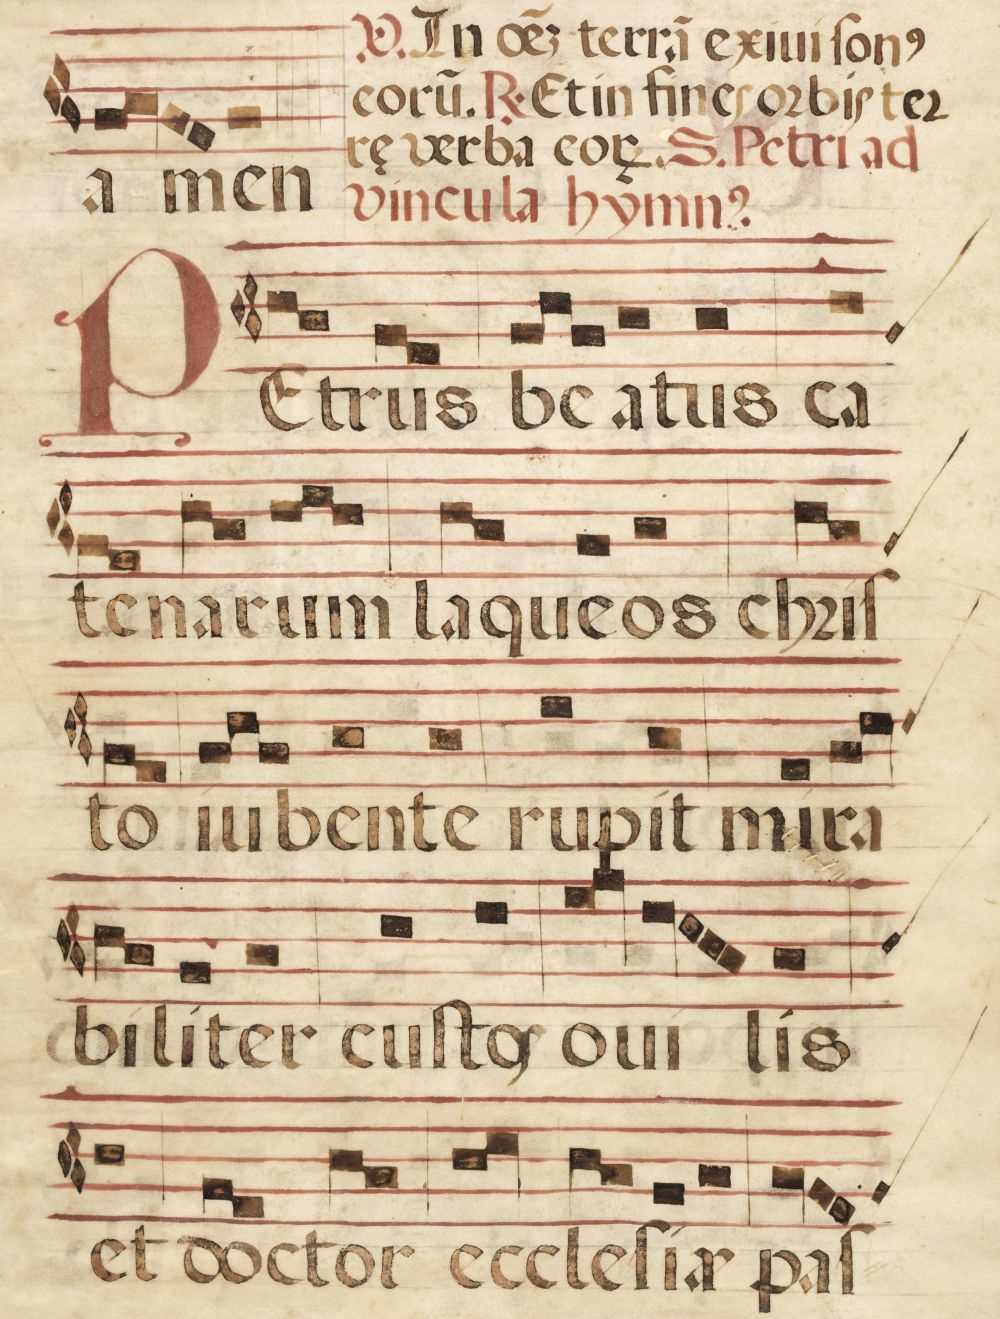 a men
V. In oēꝫ terrā exiuit sonꝰ
eorū. R. Et in fines orbis ter
rę verba eoꝝ. S. Petri ad
vincula hymnꝰ
PEtrus beatus ca
tenarum laqueos chris
to iubente rupit mira
biliter custos oui lis
et doctor ecclesiæ pas